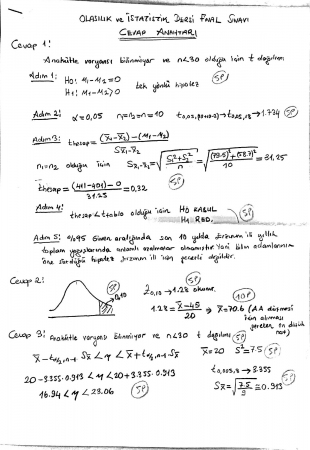 OLASILIK ve İSTATİSTİK DERSİ FİNAL SINAVI
CEVAP ANAHTARI
Cevap 1:
Anakütle varyansı bilinmiyor ve n<30 olduğu için t dağılımı
Adım 1: H0: μ1-μ2=0
H1: μ1-μ2>0 tek yönlü hipotez (5P)
Adım 2: α=0,05 n1=n2=n=10 t0,05,(10+10-2)→t0,05,18→1.734 (5P)
Adım 3: thesap = (x̄1-x̄2)-(μ1-μ2) / Sx̄1-x̄2
n1=n2 olduğu için Sx̄1-x̄2 = √(S1²+S2²/n) = √((79.5)²+(58.7)²/10) = 31,25
thesap = (411-401)-0 / 31.25 = 0,32 (5P)
Adım 4:
thesap<ttablo olduğu için H0 KABUL
H1 RED. (5P)
Adım 5: %95 Güven aralığında son 10 yılda
toplam yağışlarında anlamlı azalmalar olmamıştır. Yani bilim adamlarının
öne sürdüğü hipotez Erzurum ili için geçerli değildir.
Cevap 2: (5P)
0,10 Z0,10→1.28 okunur. (10P)
1.28 = x̄-45 / 20 ⇒ x̄=70.6 (AA düşmesi
için alınması
gereken en düşük
not)
Cevap 3: Anakütle varyans bilinmiyor ve n<30 t dağılımı (5P)
x̄-tα/2,n-1 Sx̄ < μ < x̄+tα/2,n-1 Sx̄ x̄=20 S²=7.5 (5P)
20-3.355.0.913 < μ < 20+3.355.0.913 t0,005,8→3.355
16.94 < μ < 23.06 (5P) Sx̄=√(7.5/9)=0.913 (5P)